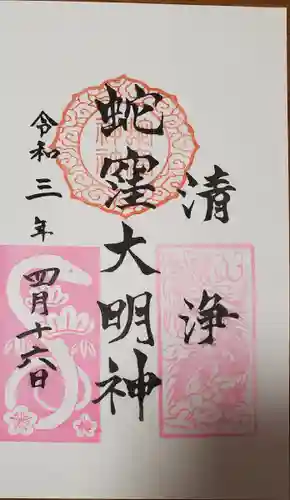 清浄
蛇窪大明神
令和三年
四月十六日